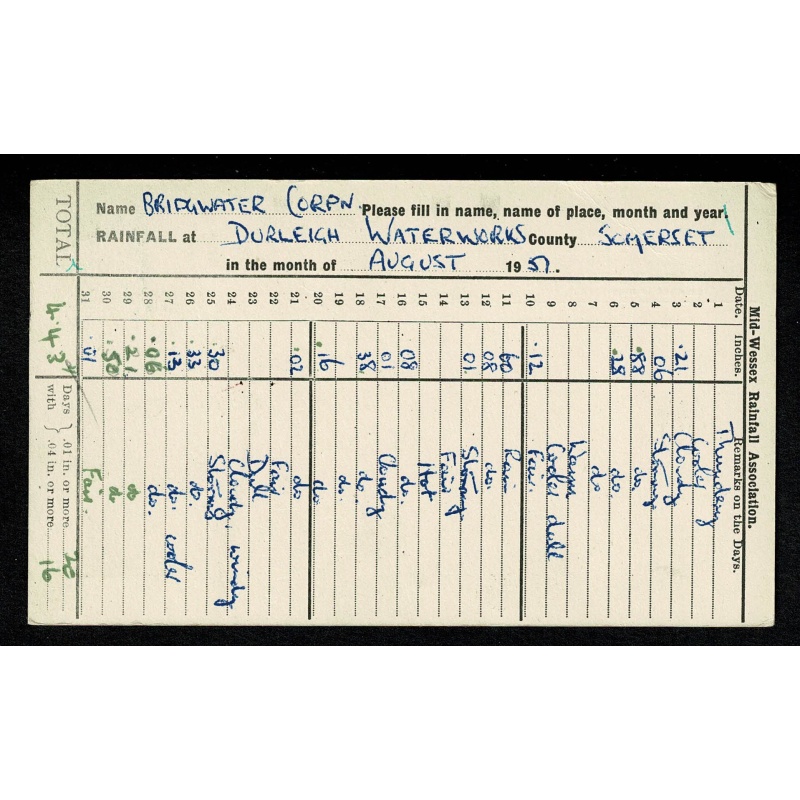 Name BRIDGWATER CORPN. Please fill in name, name of place, month and year.
RAINFALL at DURLEIGH WATERWORKS County SOMERSET
in the month of AUGUST 1951.
Mid-Wessex Rainfall Association.
Date. Inches. Remarks on the Days.
1 Thundery
2 Cool
3 .21 Cloudy
4 .06 Stormy
5 .88 do.
6 .28 do
7 do
8 Warm
9 Cooler dull
10 .12 Fair.
11 .60 Rain
12 .08 do.
13 .01 Stormy
14 Fair
15 Hot
16 .08 do.
17 .01 Cloudy
18 .38 do.
19 do.
20 .16 do
21 .02 do
22 Fair
23 Dull
24 Cloudy, windy
25 .30 Stormy
26 .33 do.
27 .13 do. cooler
28 .06 do.
29 .21 do
30 .50 do
31 .01 Fair.
TOTAL 4.43 Days with .01 in. or more 20
.04 in. or more 16